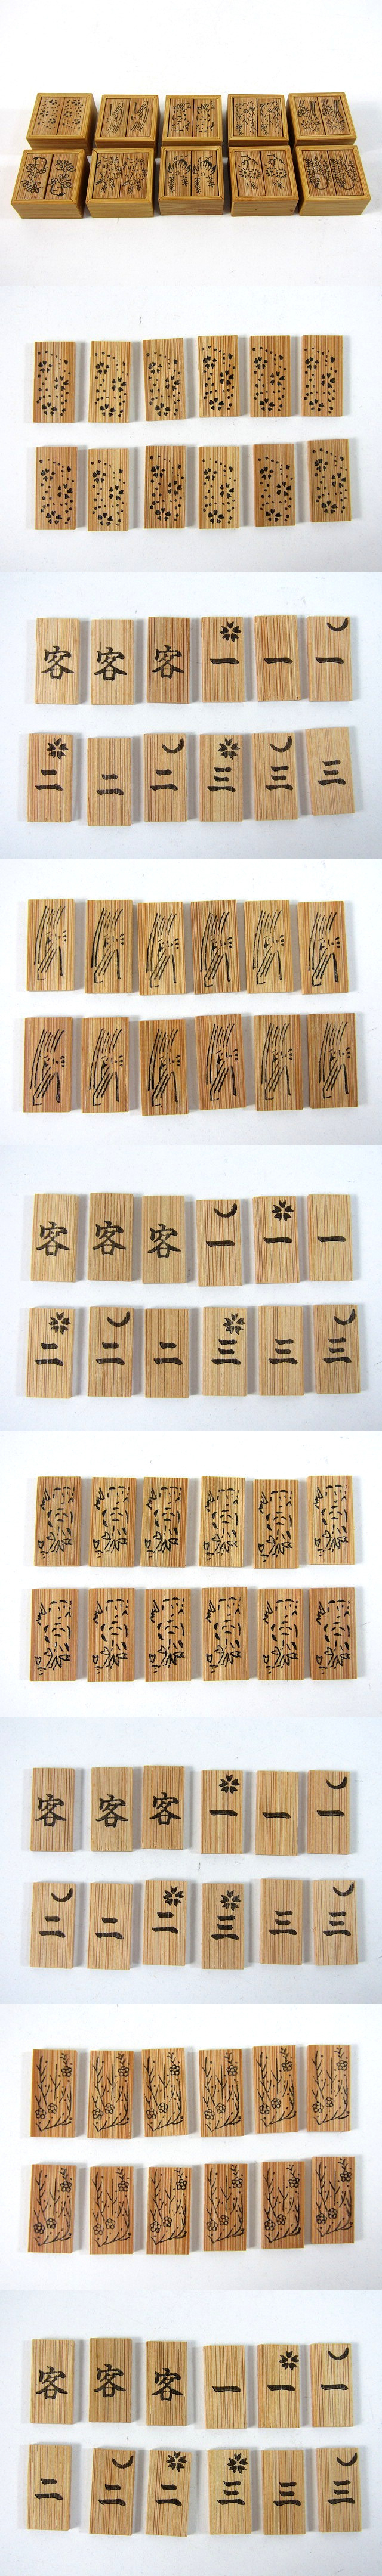 客 客 客 一 一 一
二 二 二 三 三 三
客 客 客 一 一 一
二 二 二 三 三 三
客 客 客 一 一 一
二 二 二 三 三 三
客 客 客 一 一 一
二 二 二 三 三 三